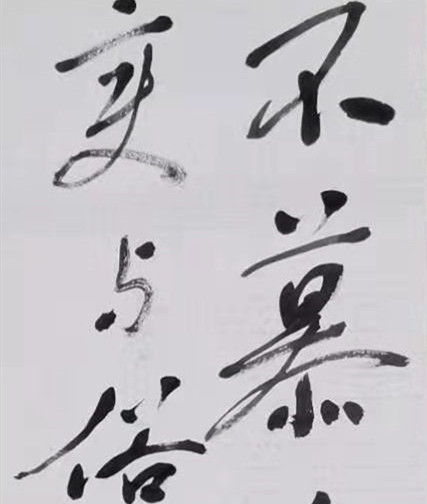 不慕
变与俗